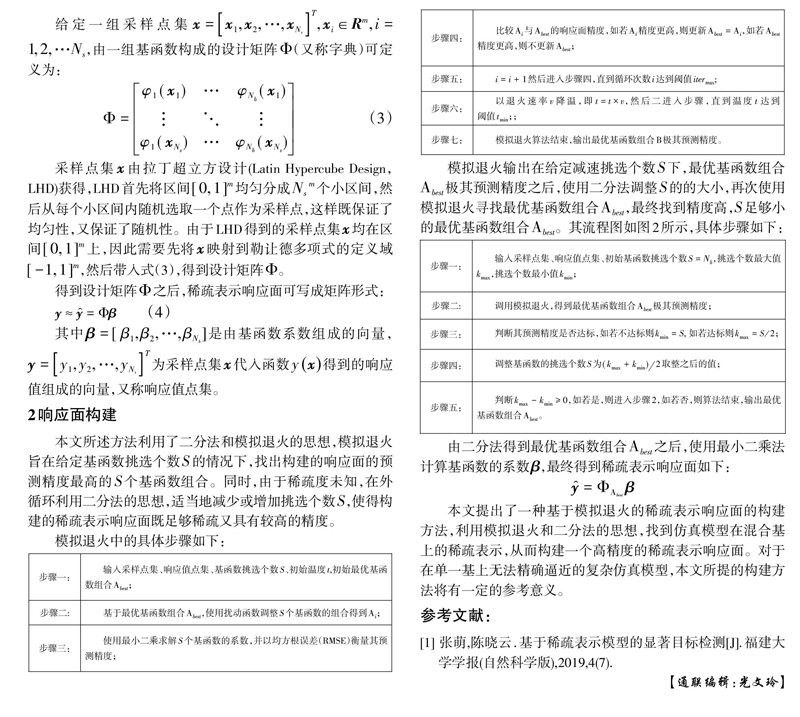 给定一组采样点集 x = [x₁, x₂, ⋯, x_{N_s}]^T, x_i ∈ R^m, i =
1,2,⋯N_s,由一组基函数构成的设计矩阵Φ(又称字典)可定
义为:
Φ = [φ₁(x₁) ⋯ φ_{N_b}(x₁)
⋮ ⋱ ⋮ (3)
φ₁(x_{N_s}) ⋯ φ_{N_b}(x_{N_s})]
采样点集x由拉丁超立方设计(Latin Hypercube Design,
LHD)获得,LHD首先将区间[0,1]^m均匀分成N_s^m个小区间,然
后从每个小区间内随机选取一个点作为采样点,这样既保证了
均匀性,又保证了随机性。由于LHD得到的采样点集x均在区
间[0,1]^m上,因此需要先将x映射到勒让德多项式的定义域
[-1,1]^m,然后带入式(3),得到设计矩阵Φ。
得到设计矩阵Φ之后,稀疏表示响应面可写成矩阵形式:
y ≈ ŷ = Φβ (4)
其中β = [β₁,β₂,⋯,β_{N_b}]是由基函数系数组成的向量,
y = [y₁, y₂, ⋯, y_{N_s}]^T为采样点集x代入函数y(x)得到的响应
值组成的向量,又称响应值点集。
2响应面构建
本文所述方法利用了二分法和模拟退火的思想,模拟退火
旨在给定基函数挑选个数S的情况下,找出构建的响应面的预
测精度最高的S个基函数组合。同时,由于稀疏度未知,在外
循环利用二分法的思想,适当地减少或增加挑选个数S,使得构
建的稀疏表示响应面既足够稀疏又具有较高的精度。
模拟退火中的具体步骤如下:
步骤一: 输入采样点集、响应值点集、基函数挑选个数S、初始温度t,初始最优基函
数组合A_best;
步骤二: 基于最优基函数组合A_best,使用扰动函数调整S个基函数的组合得到A_i;
步骤三: 使用最小二乘求解S个基函数的系数,并以均方根误差(RMSE)衡量其预
测精度;
步骤四: 比较A_i与A_best的响应面精度,如若A_i精度更高,则更新A_best = A_i,如若A_best
精度更高,则不更新A_best;
步骤五: i = i + 1然后进入步骤四,直到循环次数i达到阈值iter_max;
步骤六: 以退火速率v降温,即t = t × v,然后二进入步骤,直到温度t达到
阈值t_min;;
步骤七: 模拟退火算法结束,输出最优基函数组合B极其预测精度。
模拟退火输出在给定减速挑选个数S下,最优基函数组合
A_best极其预测精度之后,使用二分法调整S的的大小,再次使用
模拟退火寻找最优基函数组合A_best,最终找到精度高,S足够小
的最优基函数组合A_best。其流程图如图2所示,具体步骤如下:
步骤一: 输入采样点集、响应值点集、初始基函数挑选个数S = N_b,挑选个数最大值
k_max,挑选个数最小值k_min;
步骤二: 调用模拟退火,得到最优基函数组合A_best极其预测精度;
步骤三: 判断其预测精度是否达标,如若不达标则k_min = S, 如若达标则k_max = S/2;
步骤四: 调整基函数的挑选个数S为(k_max + k_min)/2取整之后的值;
步骤五: 判断k_max - k_min ≥ 0,如若是,则进入步骤2,如若否,则算法结束,输出最优
基函数组合A_best。
由二分法得到最优基函数组合A_best之后,使用最小二乘法
计算基函数的系数β,最终得到稀疏表示响应面如下:
ŷ = Φ_{A_best}β
本文提出了一种基于模拟退火的稀疏表示响应面的构建
方法,利用模拟退火和二分法的思想,找到仿真模型在混合基
上的稀疏表示,从而构建一个高精度的稀疏表示响应面。对于
在单一基上无法精确逼近的复杂仿真模型,本文所提的构建方
法将有一定的参考意义。
参考文献:
[1] 张萌,陈晓云.基于稀疏表示模型的显著目标检测[J].福建大
学学报(自然科学版),2019,4(7).
【通联编辑:光文玲】